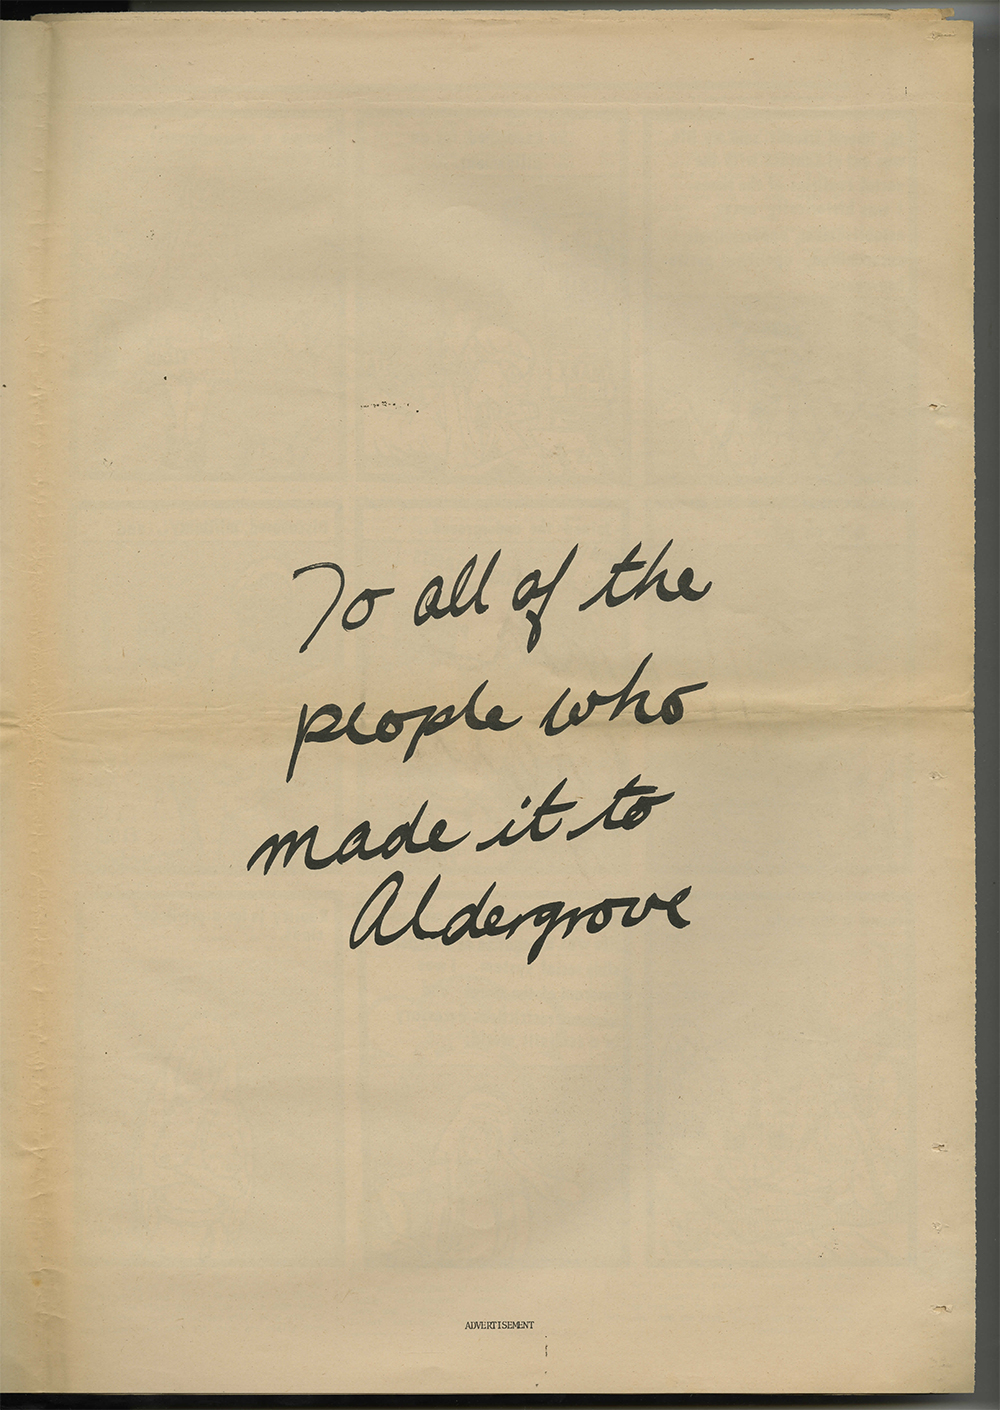 To all of the
people who
made it to
Aldergrove
ADVERTISEMENT